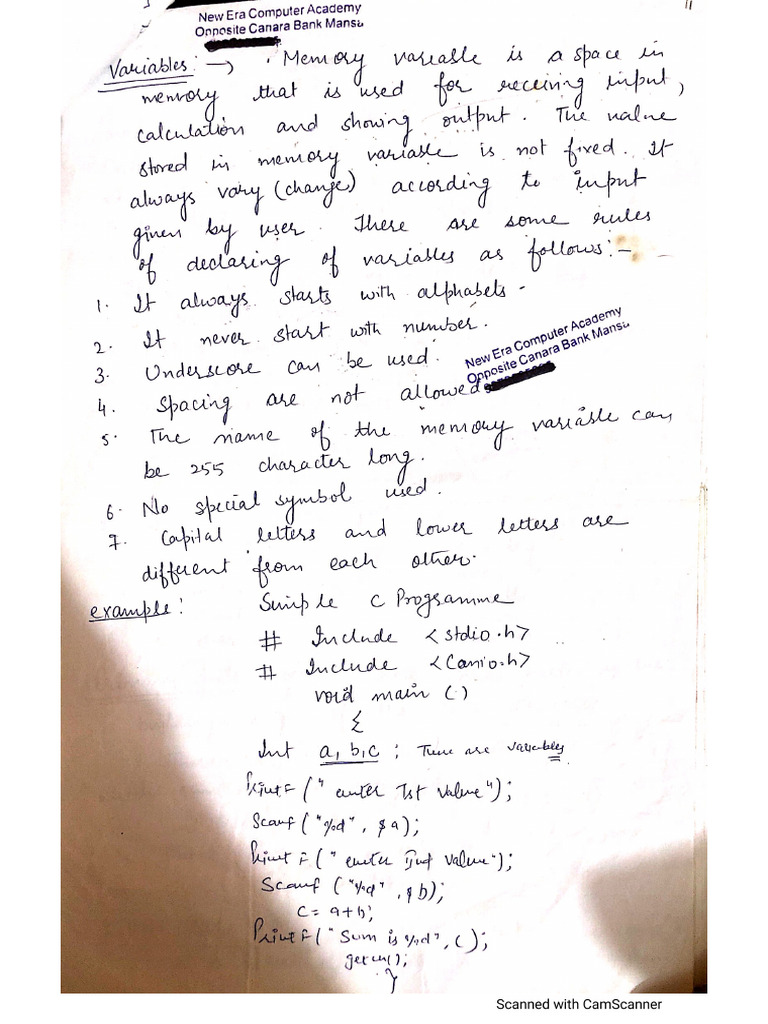 New Era Computer Academy
Opposite Canara Bank Mansa
11
Variables :→ Memory variable is a space in
memory that is used for receiving input,
calculation and showing output. The value
stored in memory variable is not fixed. It
always vary (change) according to input
given by user. There are some rules
of declaring of variables as follows:-
1. It always starts with alphabets.
2. It never start with number.
3. Underscore can be used.
New Era Computer Academy
Opposite Canara Bank Mansa
4. Spacing are not allowed
5. The name of the memory variable can
be 255 character long.
6. No special symbol used.
7. Capital letters and lower letters are
different from each other.
example: Simple C Programme
# Include <stdio.h>
# Include <Conio.h>
void main ()
{
Int a, b, c ; These are variables
Printf (" enter Ist value");
Scanf ("%d", &a);
Printf (" enter IInd value");
Scanf ("%d", &b);
c = a+b;
Printf ("Sum is %d", c);
getch();
}
Scanned with CamScanner